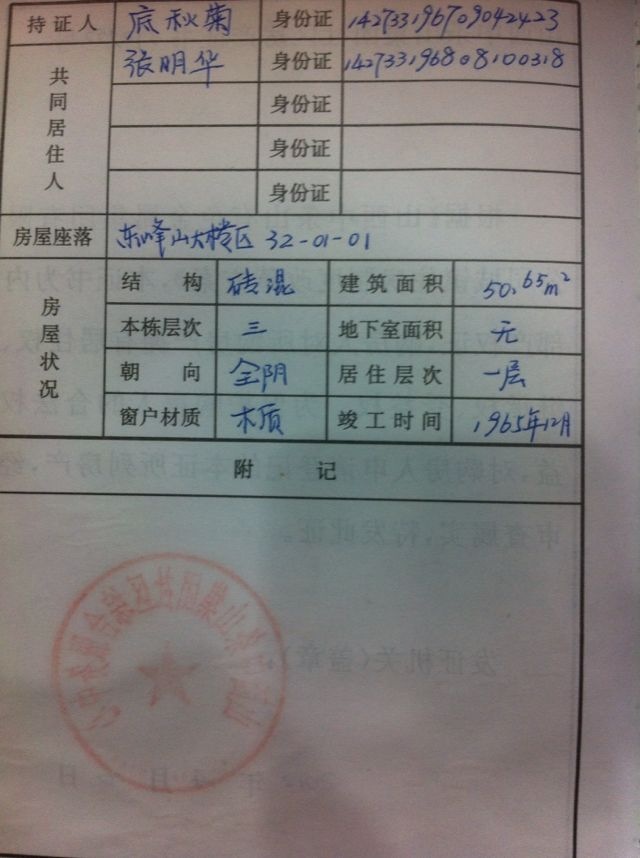 持证人 底秋菊 身份证 142733196709042423
共同居住人 张明华 身份证 142733196808100318
身份证
身份证
身份证
房屋座落 东峰山大楼区 32-01-01
房屋状况 结构 砖混 建筑面积 50.65m²
本栋层次 三 地下室面积 无
朝向 全阴 居住层次 一层
窗户材质 木质 竣工时间 1965年12月
附记
益,对购房人申请登记的本证所列房产,经
审查属实,特发此证。
发证机关(盖章)
年 月 日